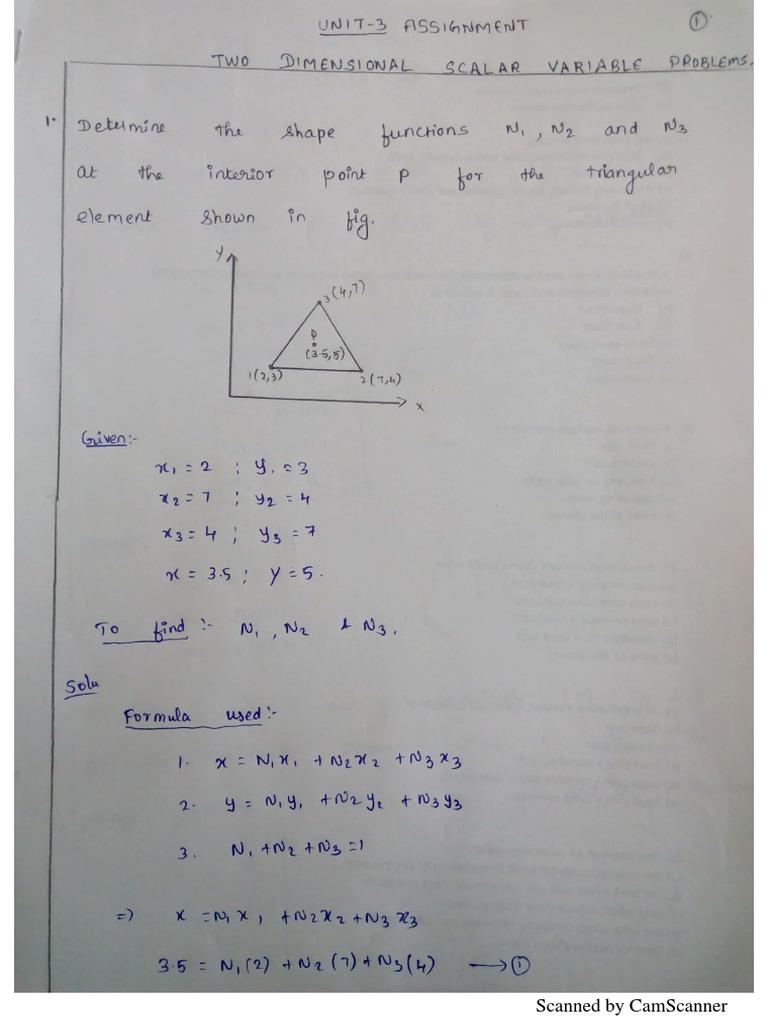 UNIT-3 ASSIGNMENT
①
TWO DIMENSIONAL SCALAR VARIABLE PROBLEMS.
1. Determine the shape functions N₁, N₂ and N₃
at the interior point P for the triangular
element shown in fig.
Y
3(4,7)
P
(3.5,5)
1(2,3)
2(7,4)
X
Given:-
x₁ = 2 ; y₁ = 3
x₂ = 7 ; y₂ = 4
x₃ = 4 ; y₃ = 7
x = 3.5 ; y = 5.
To find :- N₁, N₂ & N₃.
Solu
Formula used:-
1. x = N₁x₁ + N₂x₂ + N₃x₃
2. y = N₁y₁ + N₂y₂ + N₃y₃
3. N₁ + N₂ + N₃ = 1
=) x = N₁x₁ + N₂x₂ + N₃x₃
3.5 = N₁(2) + N₂(7) + N₃(4) → ①
Scanned by CamScanner